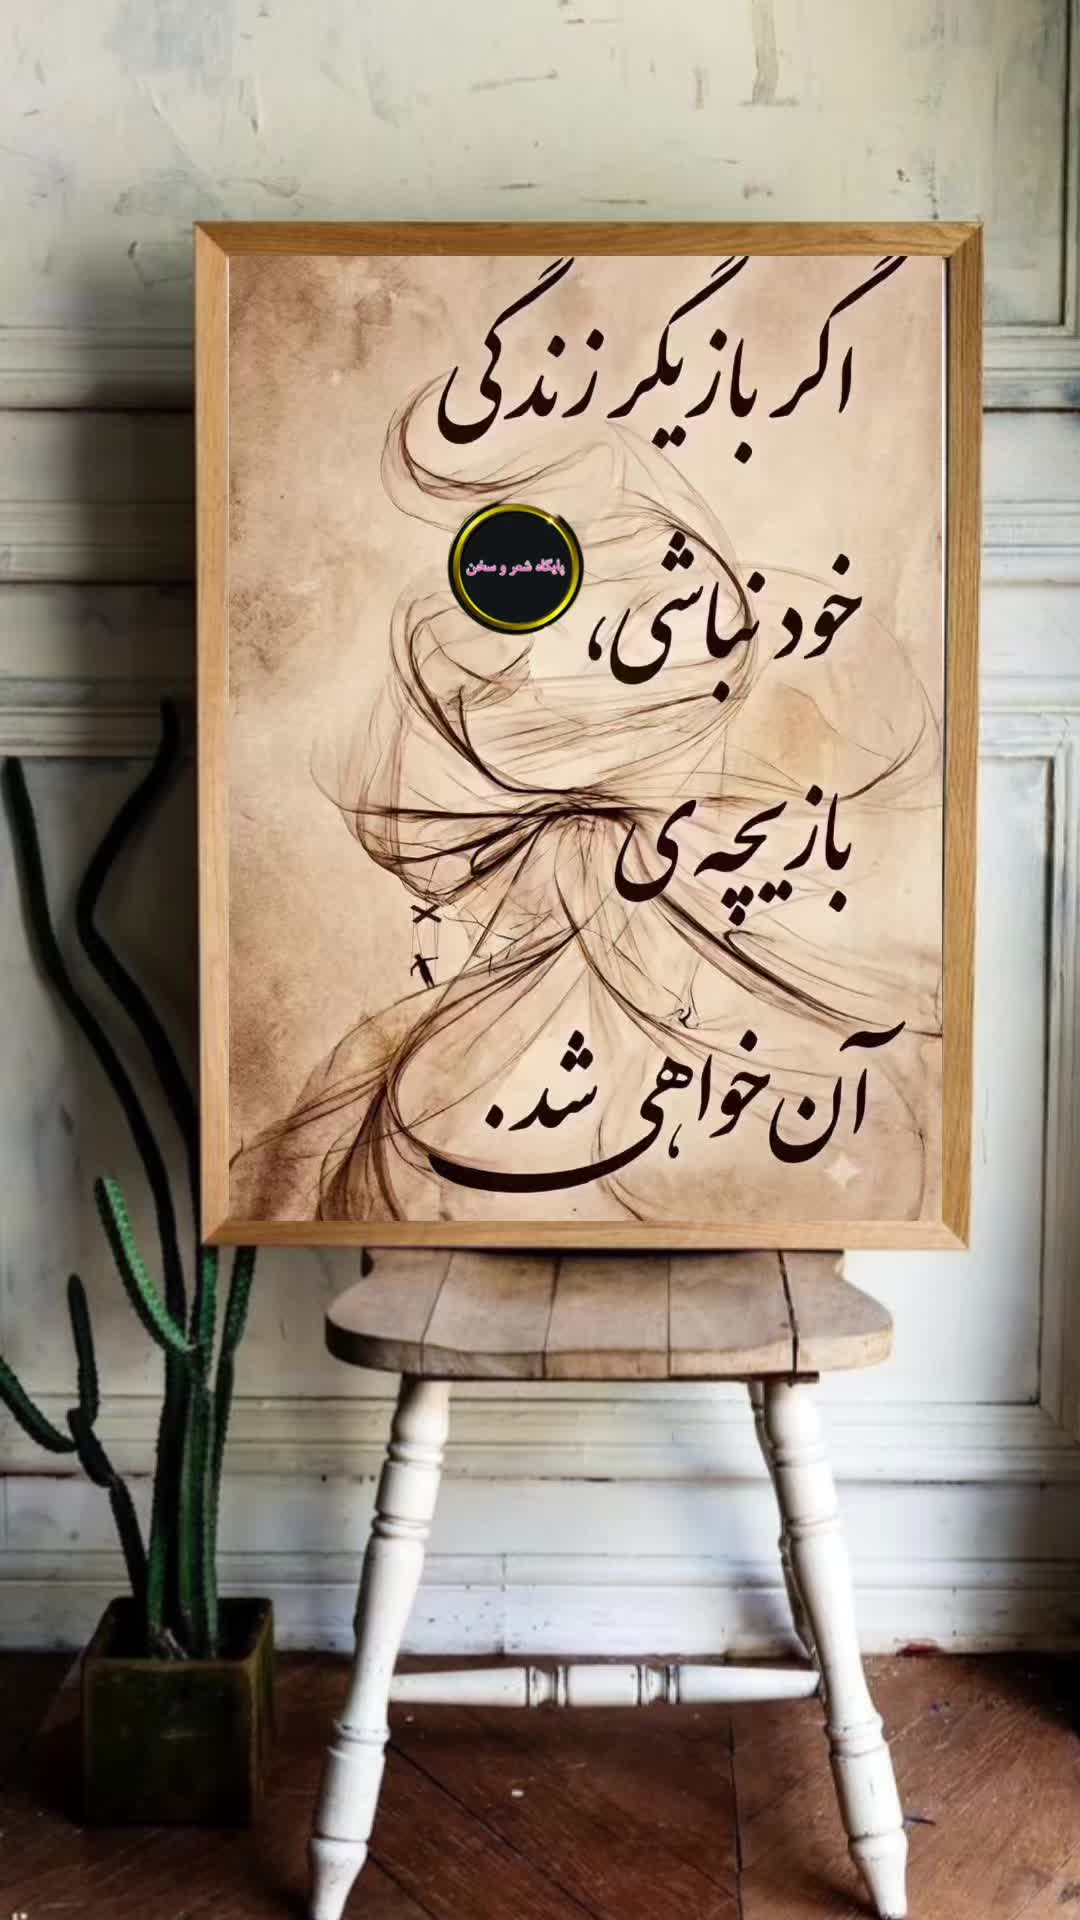 اگر بازیگر زندگی
پایگاه شعر و سخن
خود نباشی،
بازیچه‌ی
آن خواهی شد.